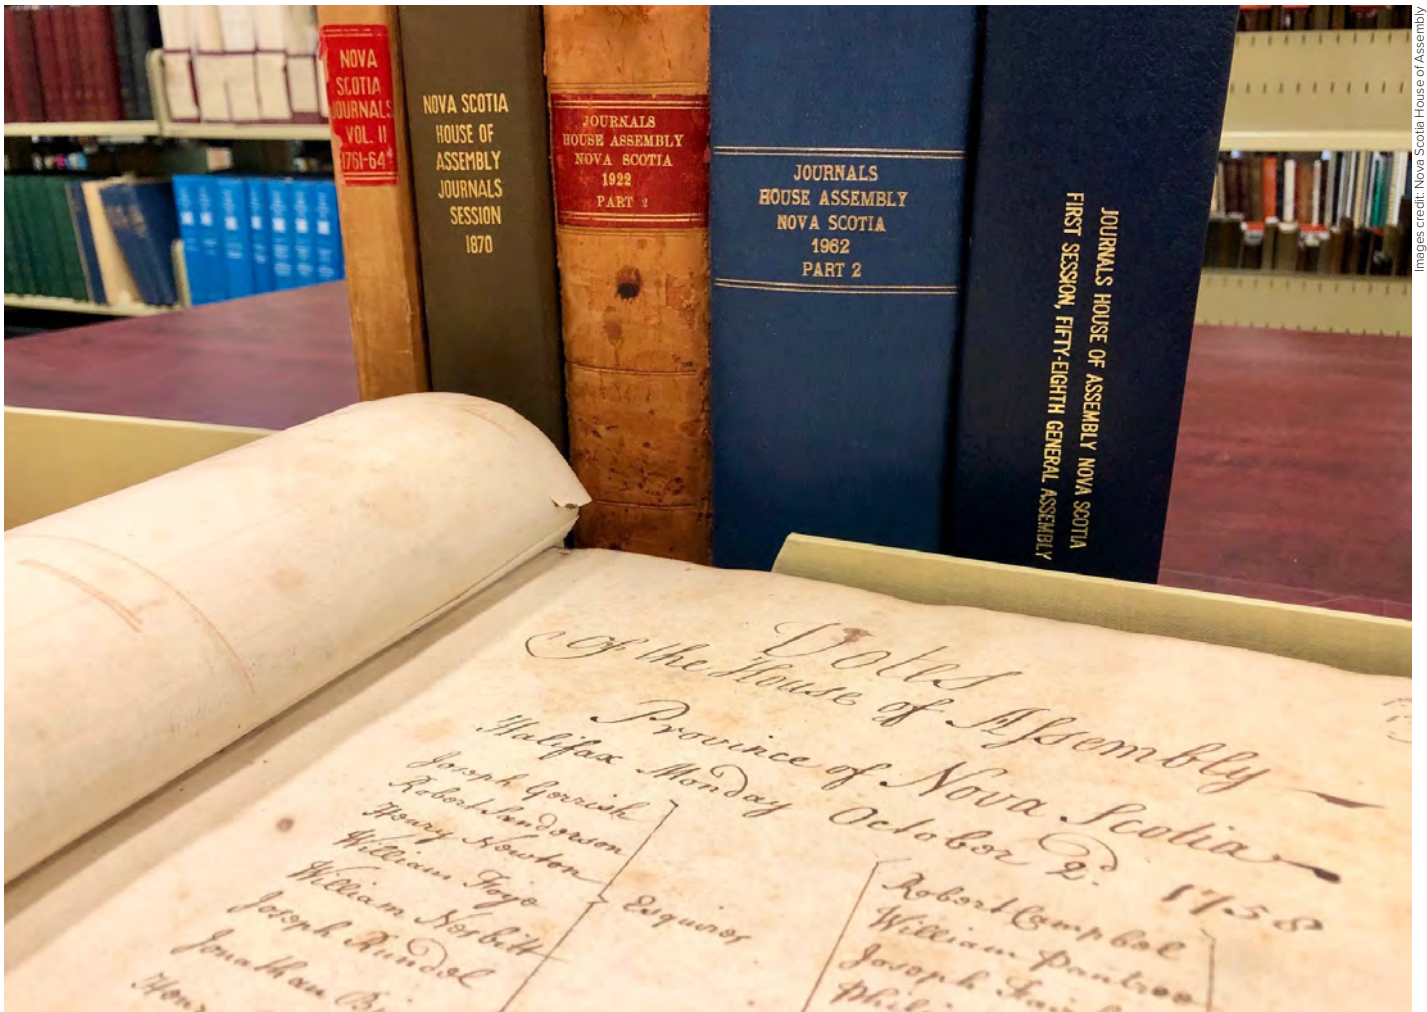 NOVA
SCOTIA
JOURNALS
VOL. II
1761-64
NOVA SCOTIA
HOUSE OF
ASSEMBLY
JOURNALS
SESSION
1870
JOURNALS
HOUSE ASSEMBLY
NOVA SCOTIA
1922
PART 2
JOURNALS
HOUSE ASSEMBLY
NOVA SCOTIA
1962
PART 2
JOURNALS HOUSE OF ASSEMBLY NOVA SCOTIA
FIRST SESSION, FIFTY-EIGHTH GENERAL ASSEMBLY
Votes
Of the House of Assembly
Province of Nova Scotia
Halifax Monday October 2d. 1758
Joseph Gerrish
Robert Sanderson
Henry Newton
William Foye
William Nesbitt
Joseph Rundel
Jonathan
Esquires
Robert Campbel
William Pantree
Joseph
Images credit: Nova Scotia House of Assembly